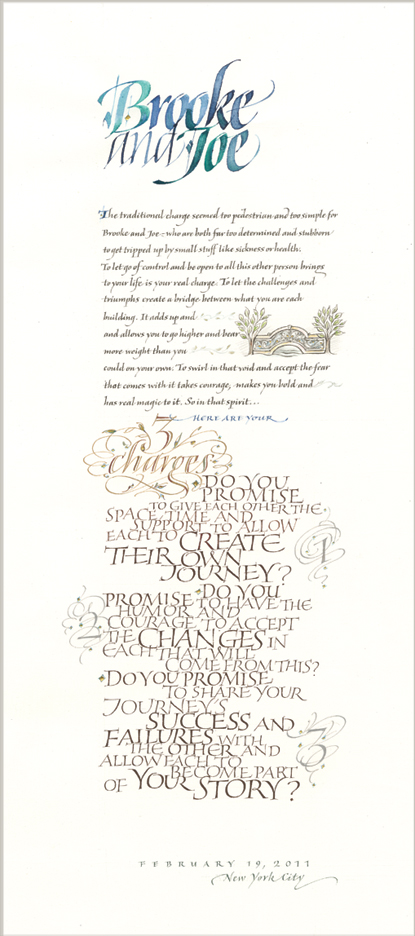 Brooke
and Joe
The traditional charge seemed too pedestrian and too simple for
Brooke and Joe – who are both far too determined and stubborn
to get tripped up by small stuff like sickness or health.
To let go of control and be open to all this other person brings
to your life is your real charge. To let the challenges and
triumphs create a bridge between what you are each
building. It adds up and
and allows you to go higher and bear
more weight than you
could on your own. To swirl in that void and accept the fear
that comes with it takes courage, makes you bold and
has real magic to it. So in that spirit...
HERE ARE YOUR
3
charges
DO YOU
PROMISE
TO GIVE EACH OTHER THE
SPACE, TIME AND
SUPPORT TO ALLOW
EACH TO CREATE
THEIR OWN
JOURNEY?
1
DO YOU
PROMISE TO HAVE THE
HUMOR AND
COURAGE TO ACCEPT
2
THE CHANGES IN
EACH THAT WILL
COME FROM THIS?
DO YOU PROMISE
TO SHARE YOUR
JOURNEY'S
SUCCESS AND
FAILURES WITH
3
THE OTHER AND
ALLOW EACH TO
BECOME PART
OF YOUR STORY?
FEBRUARY 19, 2011
New York City